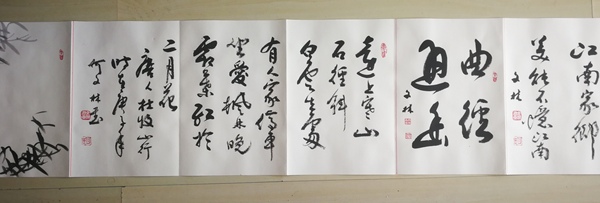 江南家鄉
美能不憶江南
文林
曲徑
通幽
文林
遠上寒山
石徑斜
白雲生處
有人家停車
坐愛楓林晚
霜葉紅於
二月花
唐人杜牧山行
庚子年
文林書